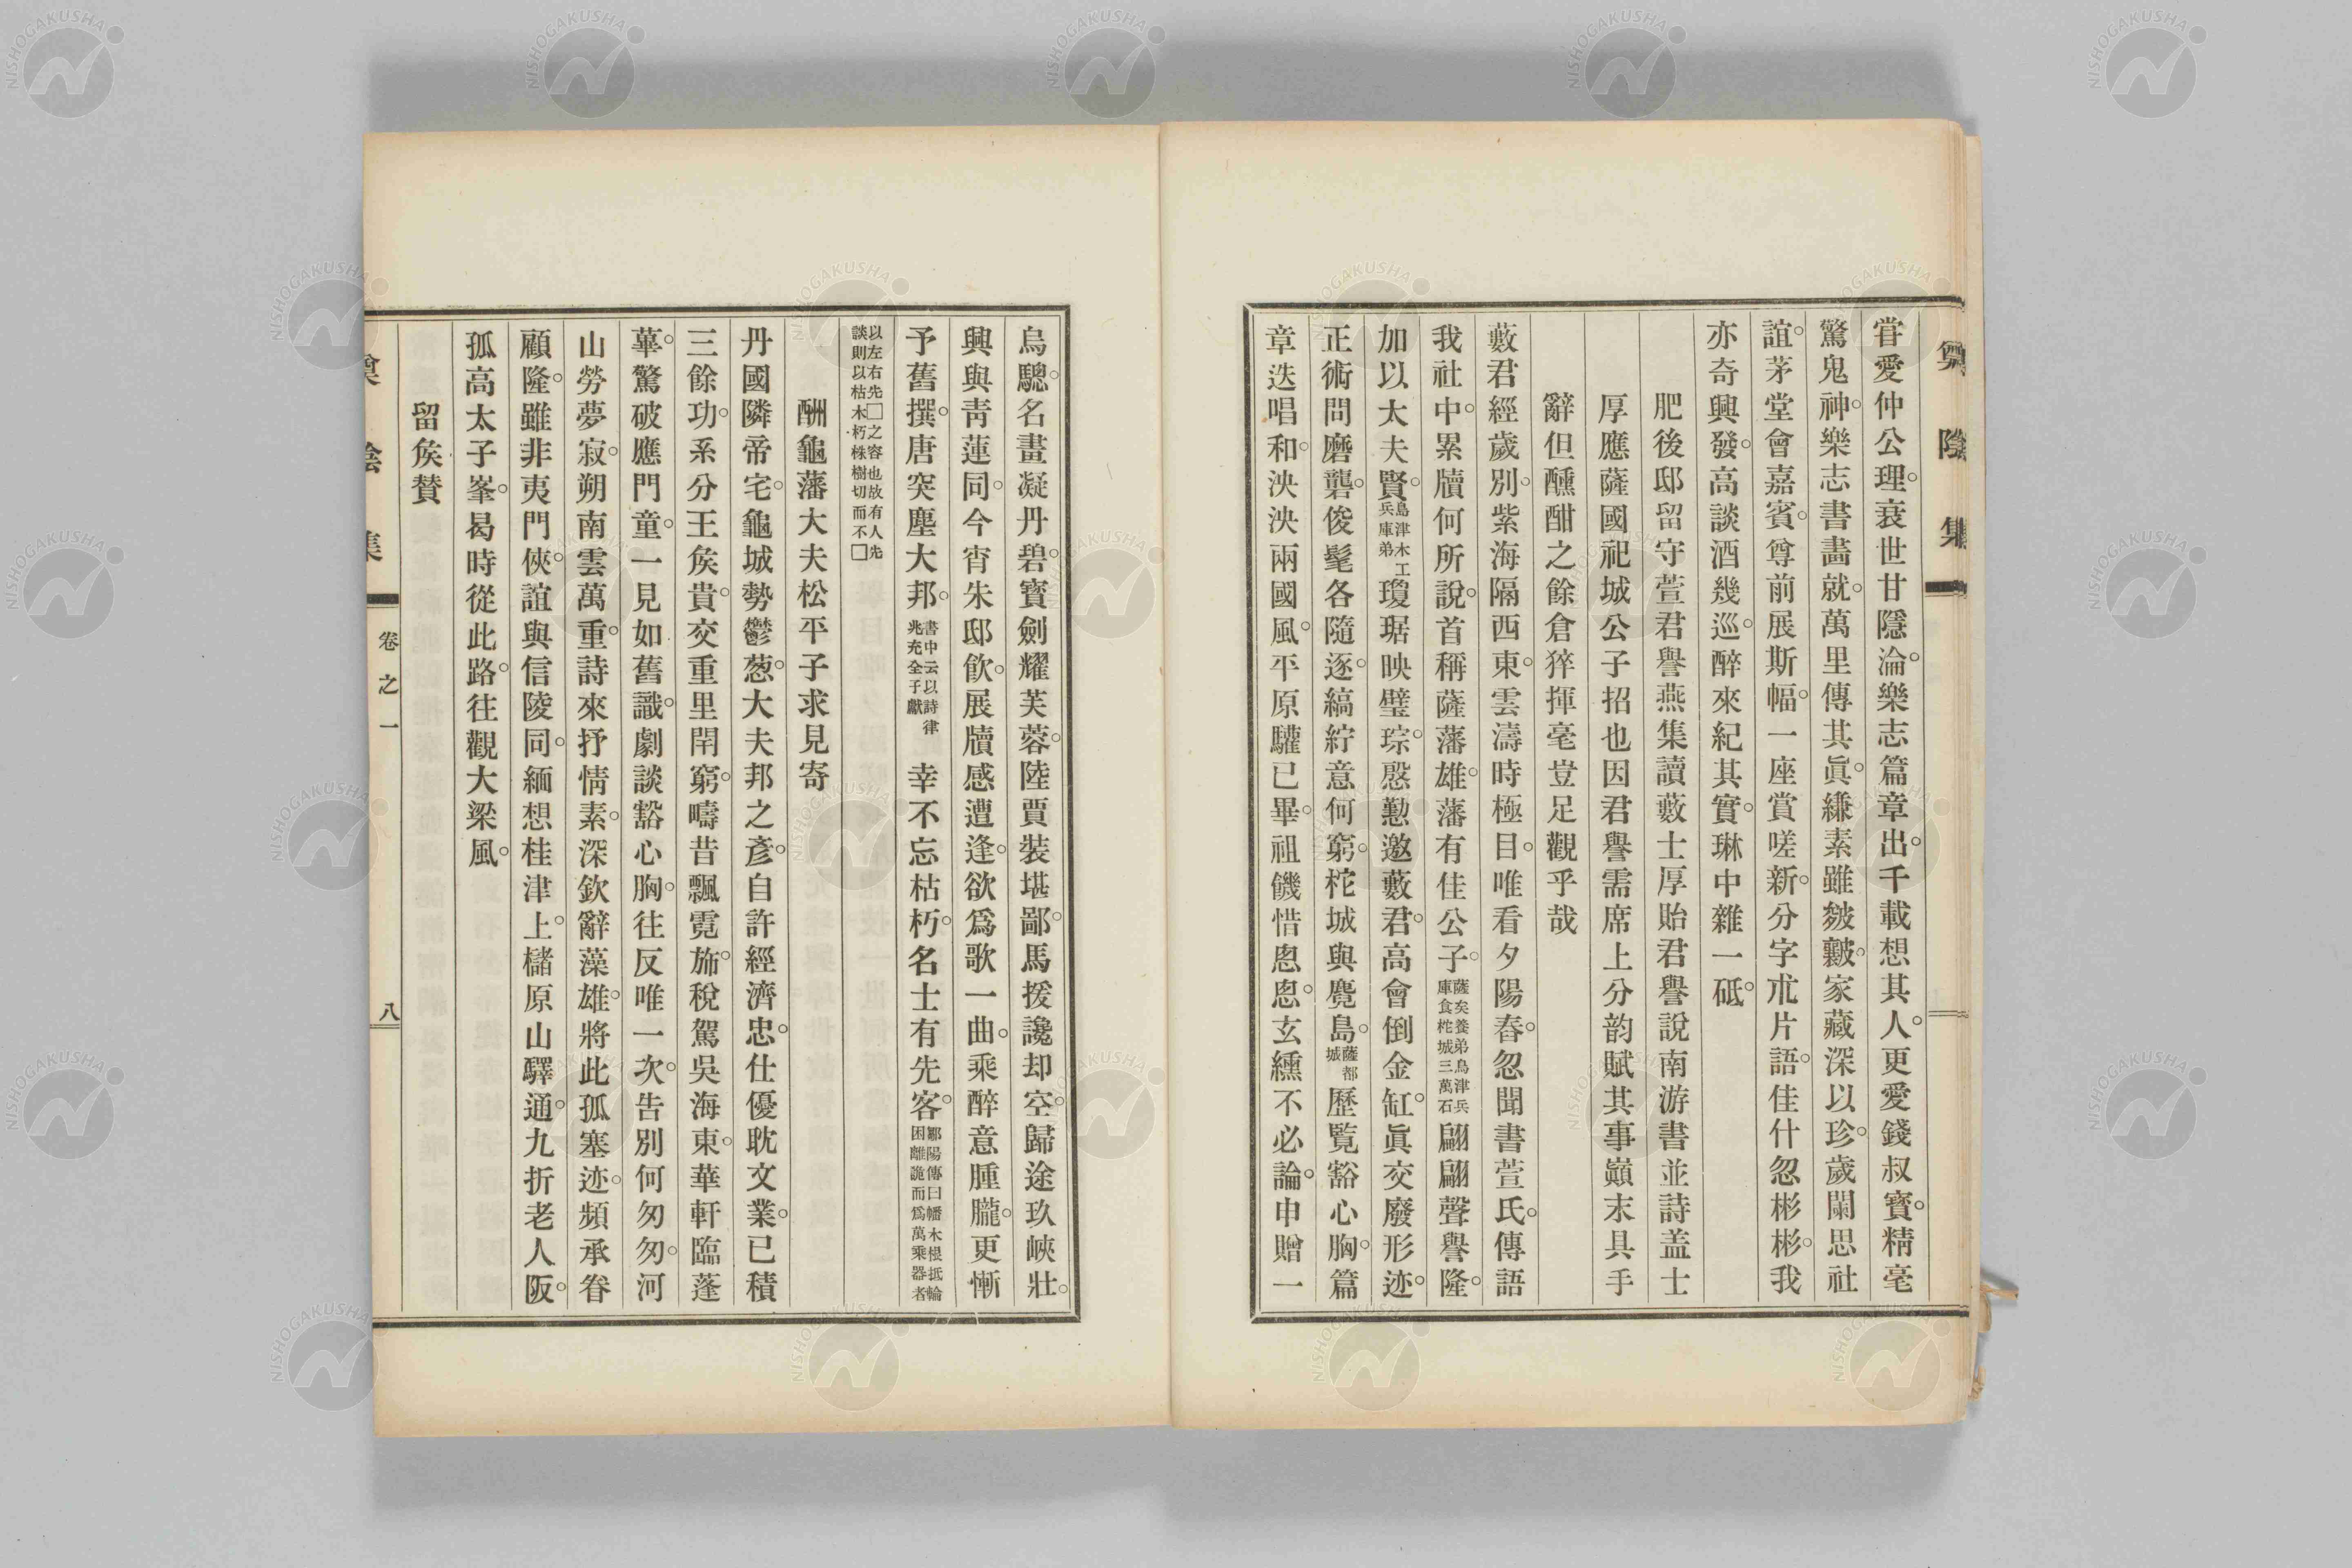 嘗愛仲公理衰世甘隱淪樂志篇章出千載想其人更愛錢叔寶精毫
驚鬼神樂志書畵就萬里傳其眞縑素雖皴皸家藏深以珍歲闌思社
誼茅堂會嘉賓尊前展斯幅一座賞嗟新分字朮片語佳什忽彬彬我
亦奇興發高談酒幾巡醉來紀其實琳中雜一砥
肥後邸留守萱君譽燕集讀藪士厚貽君譽說南游書並詩盖士
厚應薩國祀城公子招也因君譽需席上分韵賦其事巓末具手
辭但醺酣之餘倉猝揮毫豈足觀乎哉
藪君經歲別紫海隔西東雲濤時極目唯看夕陽舂忽聞書萱氏傳語
我社中累牘何所說首稱薩藩雄藩有佳公子薩矦養弟島津兵庫食柁城三萬石翩翩聲譽隆
加以太夫賢島津木工兵庫弟瓊琚映璧琮慇懃邀藪君高會倒金缸眞交廢形迹
正術問磨礱俊髦各隨逐縞紵意何窮柁城與麑島薩都城歷覧豁心胸篇
章迭唱和泱泱兩國風平原驩已畢祖餞惜悤悤玄纁不必論申贈一
烏驄名畫凝丹碧寳劍耀芙蓉陸賈裝堪鄙馬援讒却空歸途玖峽壯
興與靑蓮同今宵朱邸飮展牘感遭逢欲爲歌一曲乘醉意腫朧更慚
予舊撰唐突塵大邦書中云以詩律兆充全子獻幸不忘枯朽名士有先客鄒陽傳曰幡木根抵輪囷離詭而爲萬乘器者
以左右先□之容也故有人先談則以枯木朽株樹切而不□
酬龜藩大夫松平子求見寄
丹國隣帝宅龜城勢鬱葱大夫邦之彥自許經濟忠仕優耽文業已積
三餘功系分王矦貴交重里閈窮疇昔飄霓旆稅駕吳海東華軒臨蓬
蓽驚破應門童一見如舊識劇談豁心胸往反唯一次告別何匆匆河
山勞夢寂朔南雲萬重詩來抒情素深欽辭藻雄將此孤塞迹頻承眷
顧隆雖非夷門俠誼與信陵同緬想桂津上櫧原山驛通九折老人阪
孤高太子峯曷時從此路往觀大梁風
留矦賛
卷之一
八